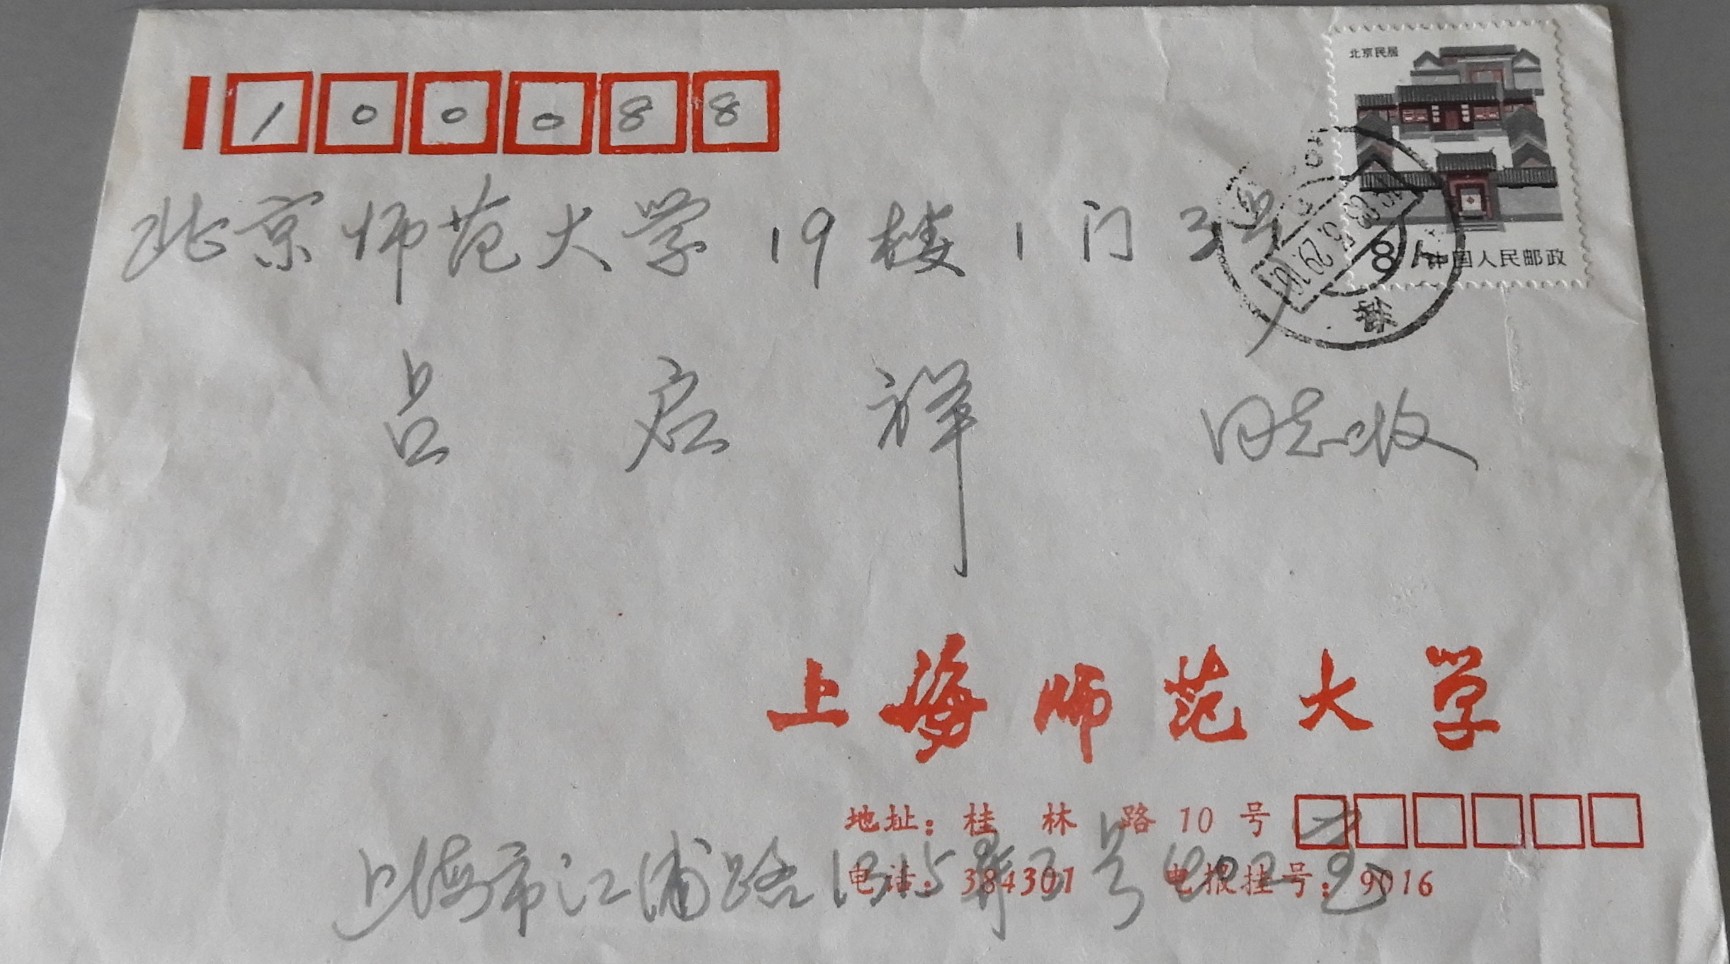 100088
北京民居
北京师范大学19楼1门3号
8分中国人民邮政
吕启祥 同志收
上海师范大学
地址：桂林路10号
电话：384301 电报挂号：9016
上海市江浦路 弄 号 室